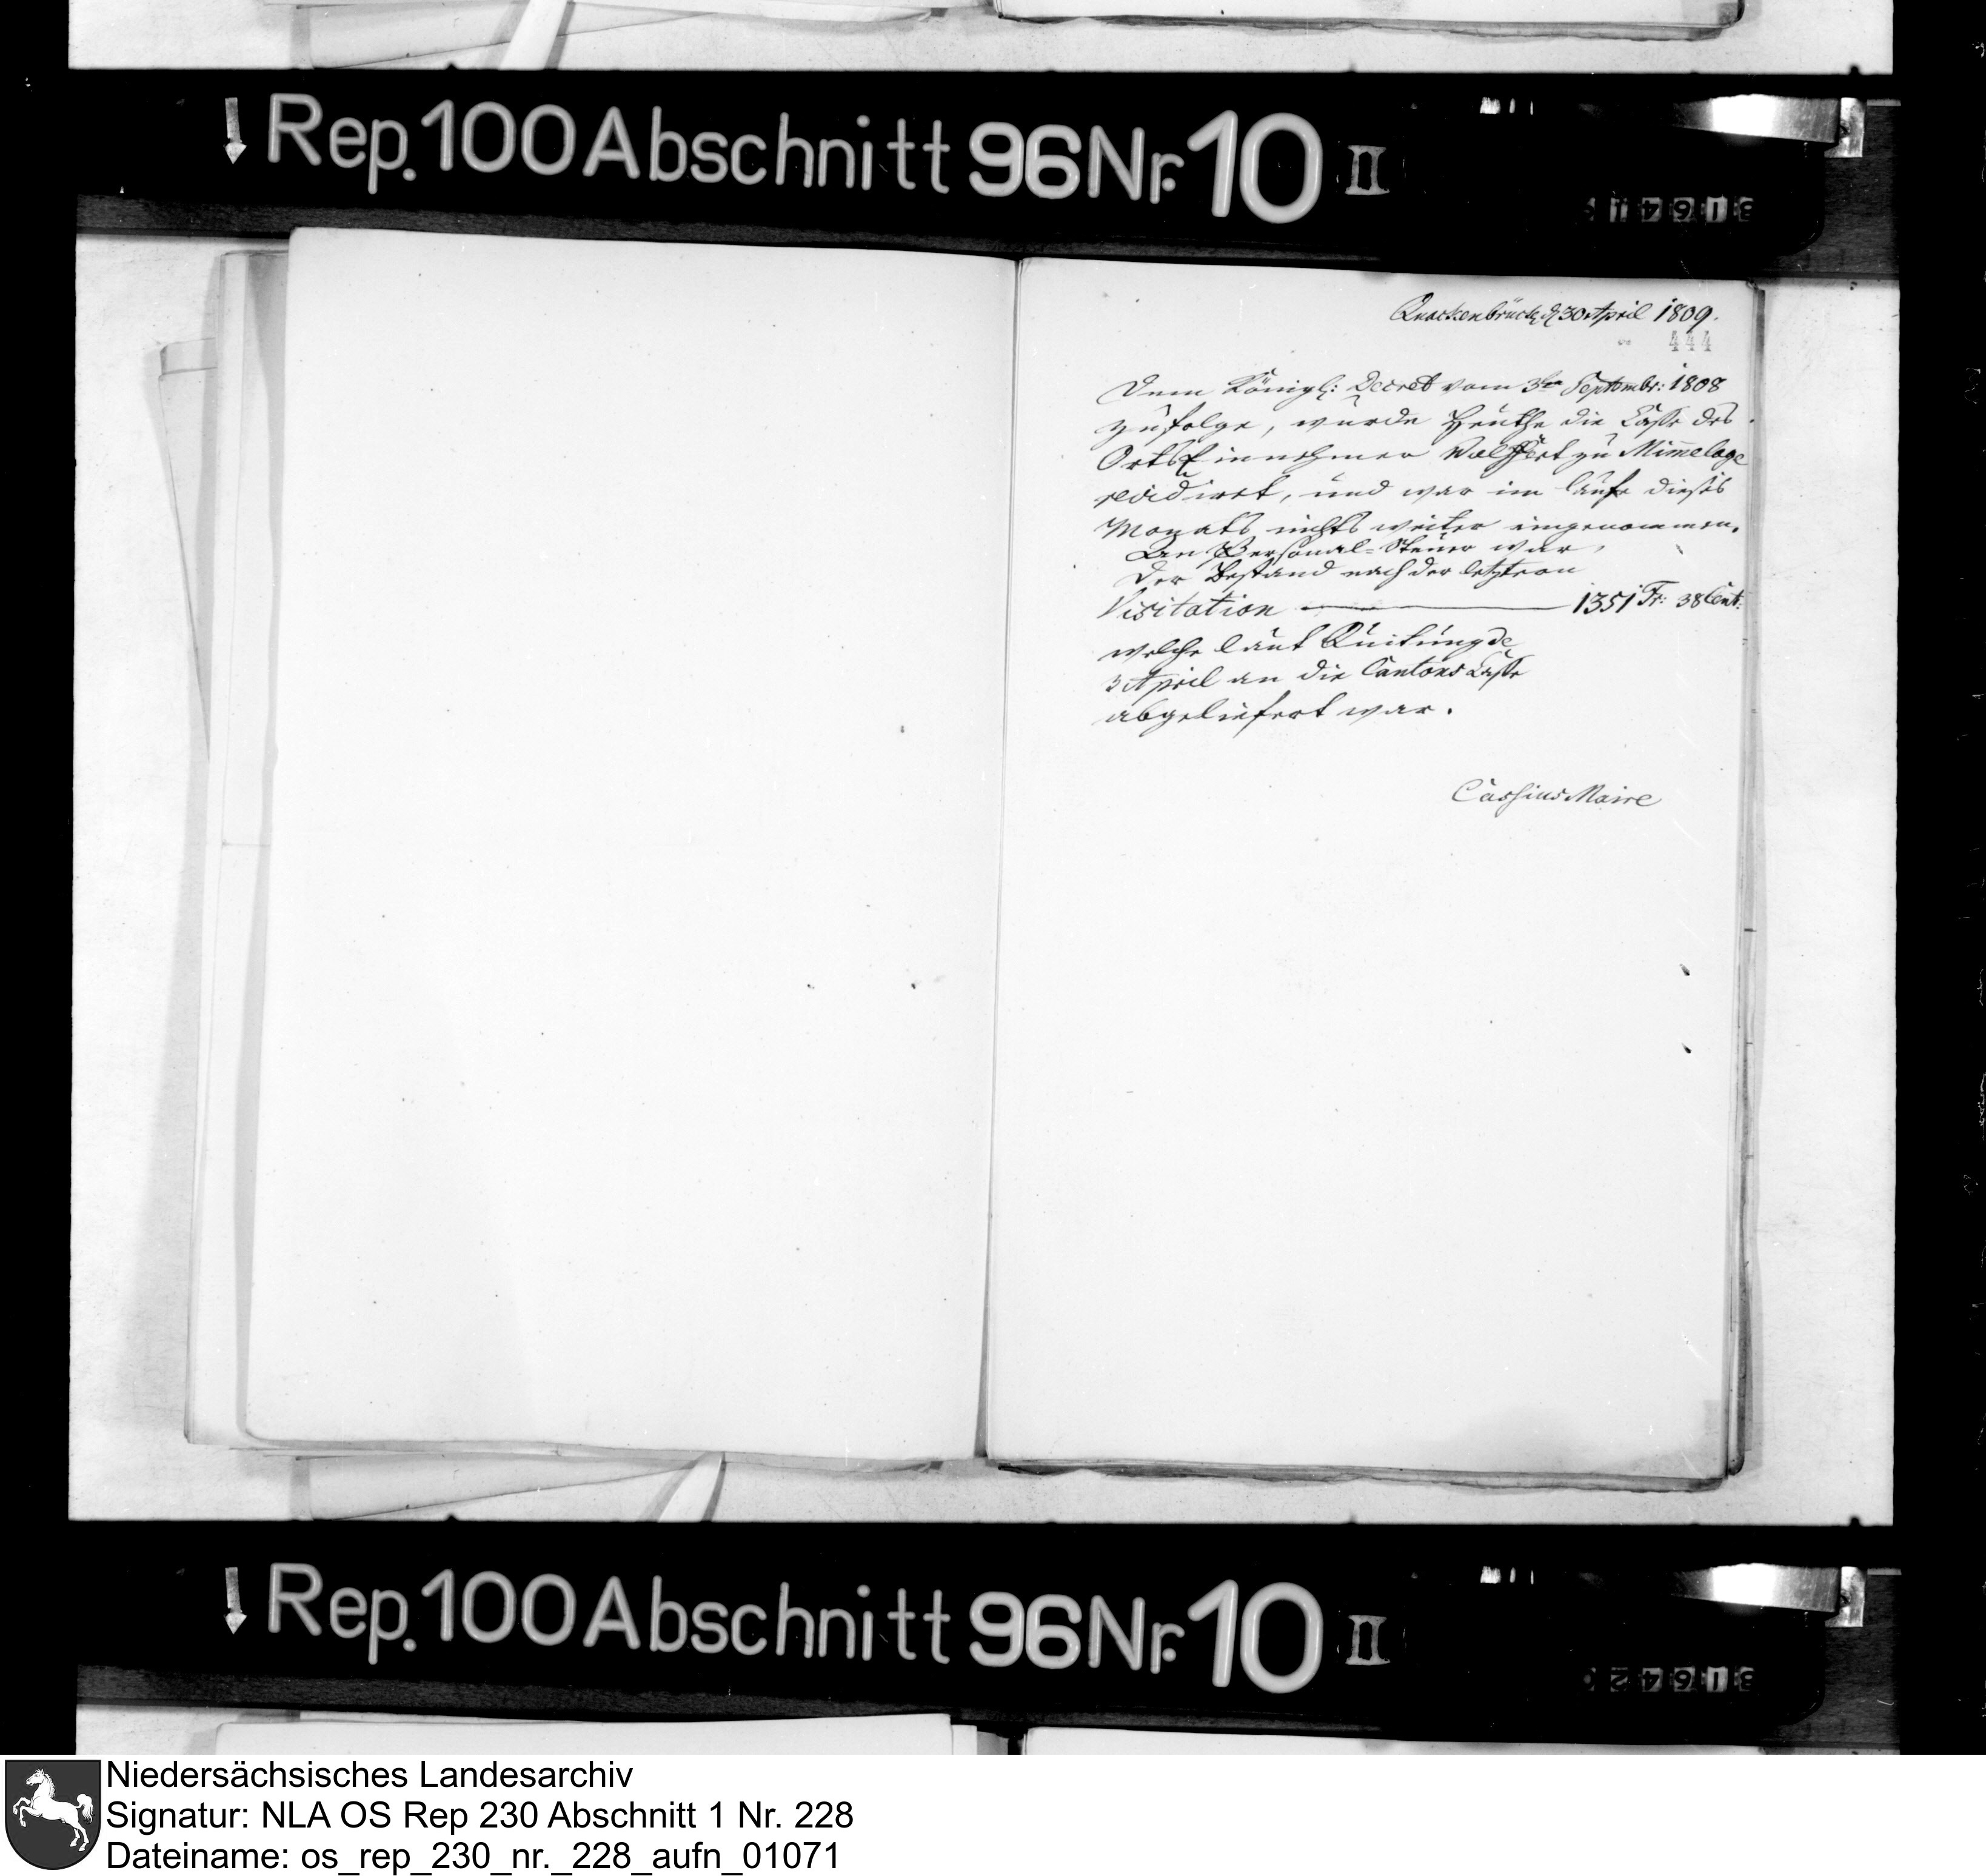 Rep. 100 Abschnitt 96 Nr. 10 II
Quackenbrück d 30 April 1809.
444
Dem Königl: Decret vom 3ten Septembr: 1808
zufolge, wurde Heuthe die Casse des
Orts Einnehmer Wolffert zu Mimelage
revidiret, und war im laufe dieses
Monats nichts weiter eingenommen.
An Personal-Steuer war,
der Bestand nach der letzteren
Visitation — 1351 Fr: 38 Cent:
welche laut Quitung de
3 April an die Cantons Casse
abgeliefert war.
Cassius Maire
Rep. 100 Abschnitt 96 Nr. 10 II
Niedersächsisches Landesarchiv
Signatur: NLA OS Rep 230 Abschnitt 1 Nr. 228
Dateiname: os_rep_230_nr._228_aufn_01071